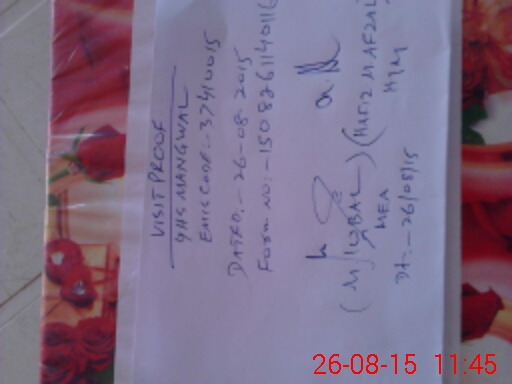 VISIT PROOF
GHS MANGWAL
EMIS CODE:- 37410015
DATED:- 26-08-2015
FORM NO:- 150826114016
(M IQBAL) (HAFIZ M AFZAL)
MEA HM
Dt:- 26/08/15
26-08-15 11:45